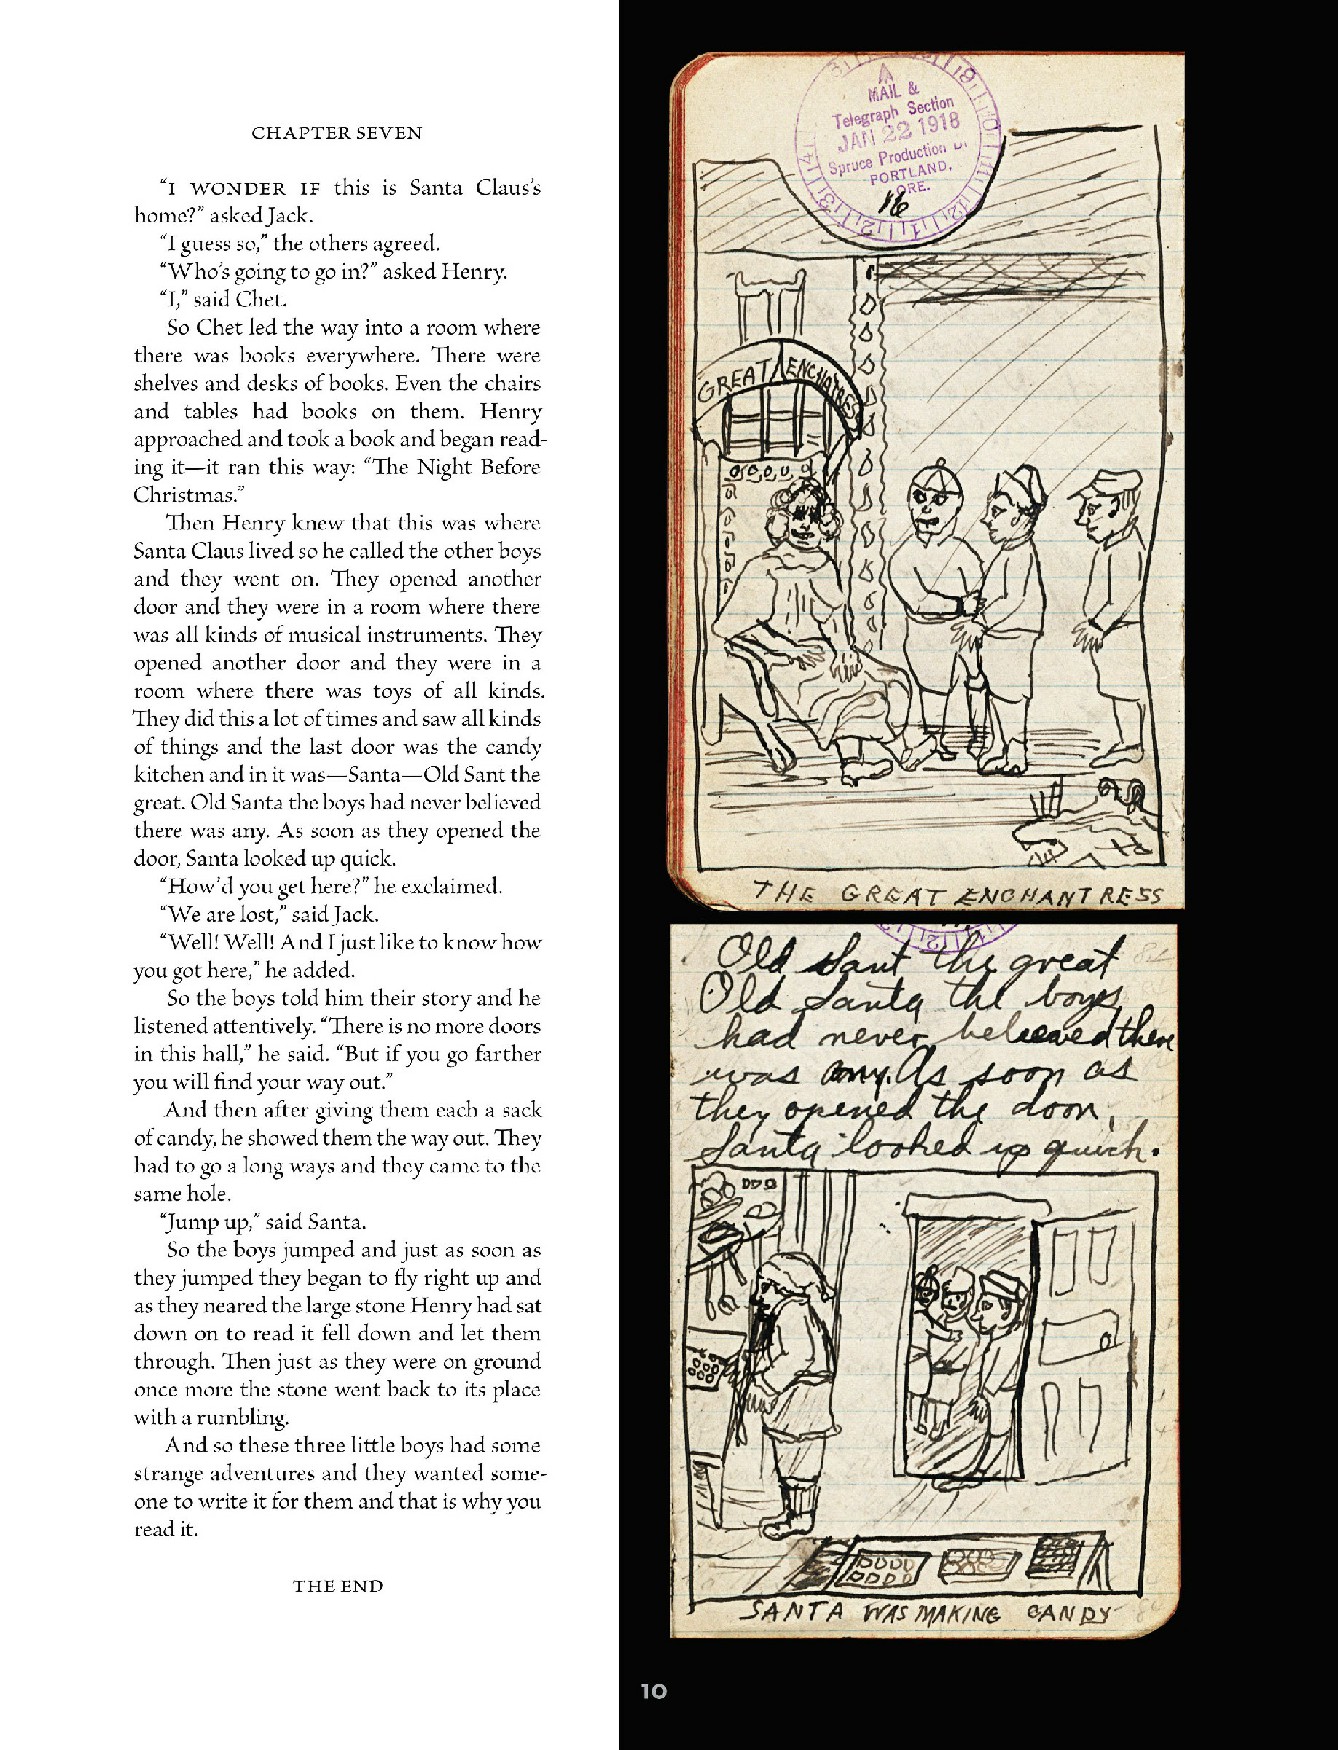 CHAPTER SEVEN
“I WONDER IF this is Santa Claus’s
home?” asked Jack.
“I guess so,” the others agreed.
“Who’s going to go in?” asked Henry.
“I,” said Chet.
So Chet led the way into a room where
there was books everywhere. There were
shelves and desks of books. Even the chairs
and tables had books on them. Henry
approached and took a book and began read-
ing it—it ran this way: “The Night Before
Christmas.”
Then Henry knew that this was where
Santa Claus lived so he called the other boys
and they went on. They opened another
door and they were in a room where there
was all kinds of musical instruments. They
opened another door and they were in a
room where there was toys of all kinds.
They did this a lot of times and saw all kinds
of things and the last door was the candy
kitchen and in it was—Santa—Old Sant the
great. Old Santa the boys had never believed
there was any. As soon as they opened the
door, Santa looked up quick.
“How’d you get here?” he exclaimed.
“We are lost,” said Jack.
“Well! Well! And I just like to know how
you got here,” he added.
So the boys told him their story and he
listened attentively. “There is no more doors
in this hall,” he said. “But if you go farther
you will find your way out.”
And then after giving them each a sack
of candy, he showed them the way out. They
had to go a long ways and they came to the
same hole.
“Jump up,” said Santa.
So the boys jumped and just as soon as
they jumped they began to fly right up and
as they neared the large stone Henry had sat
down on to read it fell down and let them
through. Then just as they were on ground
once more the stone went back to its place
with a rumbling.
And so these three little boys had some
strange adventures and they wanted some-
one to write it for them and that is why you
read it.
THE END
MAIL &
Telegraph Section
JAN 22 1918
Spruce Production
PORTLAND,
ORE.
16
GREAT ENCHATRESS
THE GREAT ENCHANTRESS
Old Sant the great
Old Santa the boys
had never beleeved there
was any. As soon as
they opened the door,
Santa looked up quick.
SANTA WAS MAKING CANDY
10